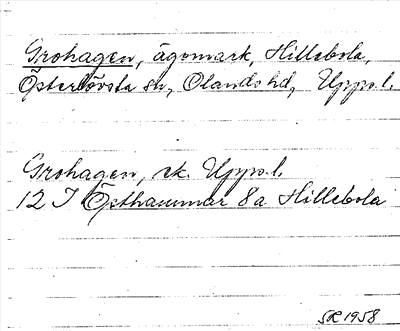 Grohagen, ägomark, Hillebola,
Österlövsta sn, Olands hd, Upps. l.
Grohagen, ek. Upps. l.
12 I Östhammar 8 a Hillebola
SR 1958